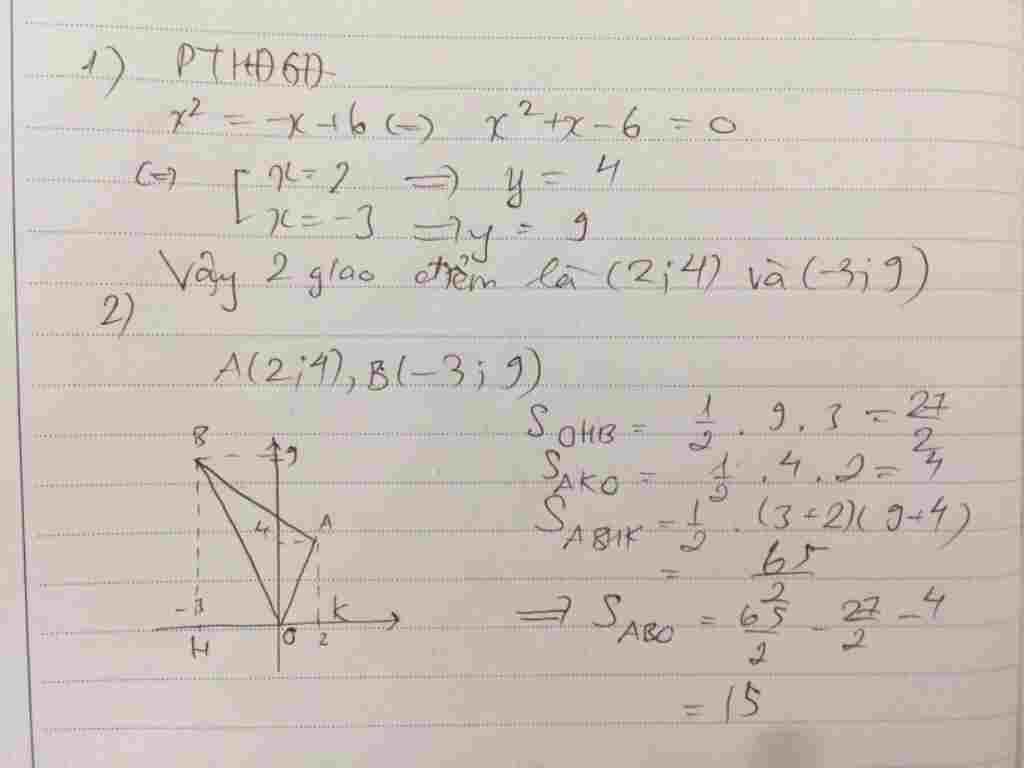 1) PTHĐGĐ
x² = -x+6 (=) x²+x-6 = 0
(=) [ x = 2 => y = 4
x = -3 => y = 9
Vậy 2 giao điểm là (2;4) và (-3;9)
2)
A(2;4), B(-3;9)
B
9
4
A
-3
K
H
O
2
S_OHB = 1/2 . 9 . 3 = 27/2
S_AKO = 1/2 . 4 . 2 = 4
S_ABHK = 1/2 . (3+2)(9+4)
= 65/2
=> S_ABO = 65/2 - 27/2 - 4
= 15